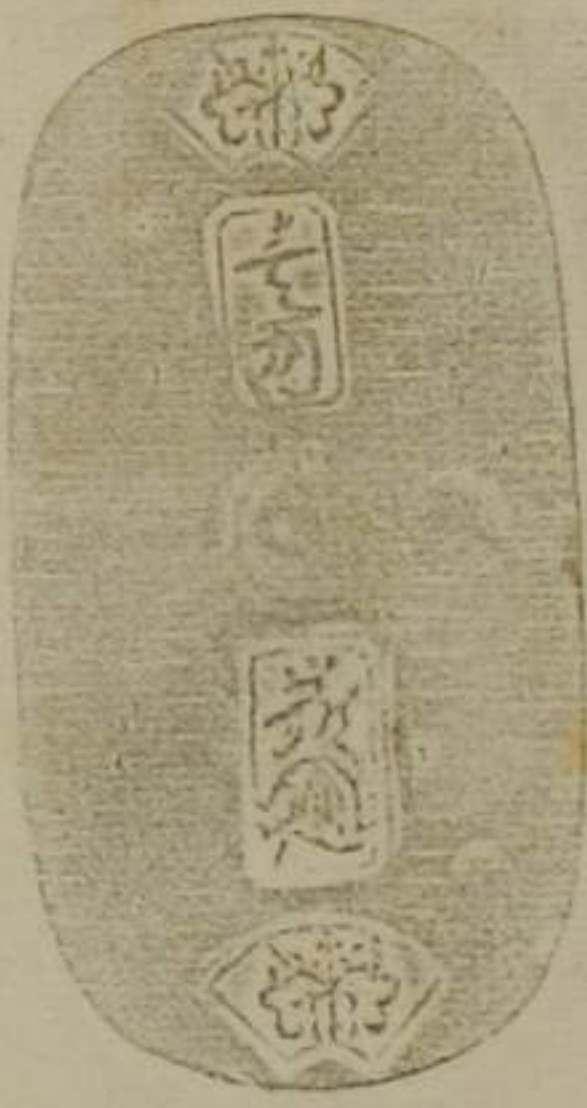 壹两
光次